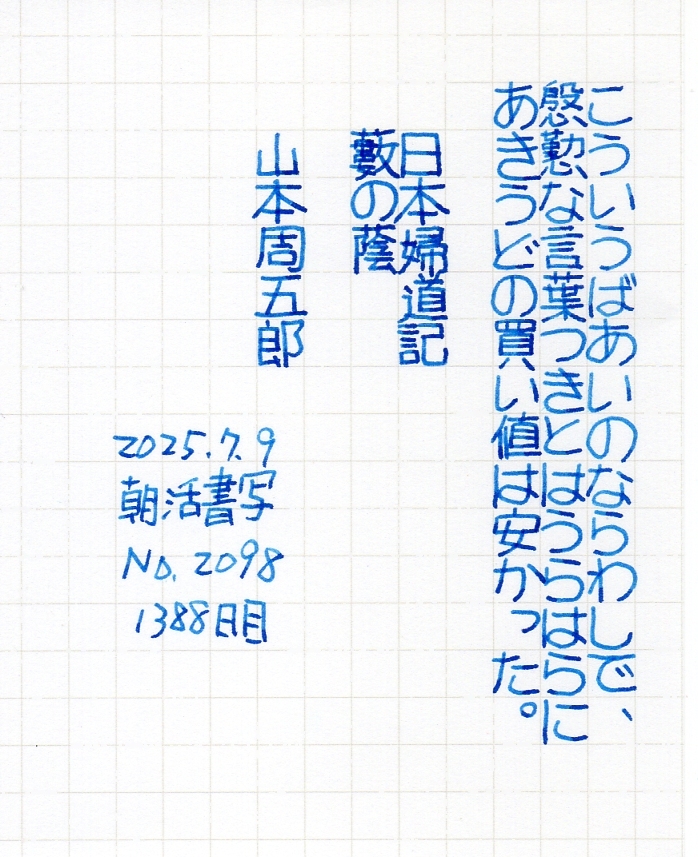 こういうばあいのならわしで、
慇懃な言葉つきとはうらはらに
あきうどの買い値は安かった。
日本婦道記
藪の蔭
山本周五郎
2025.7.9
朝活書写
No. 2098
1388日目